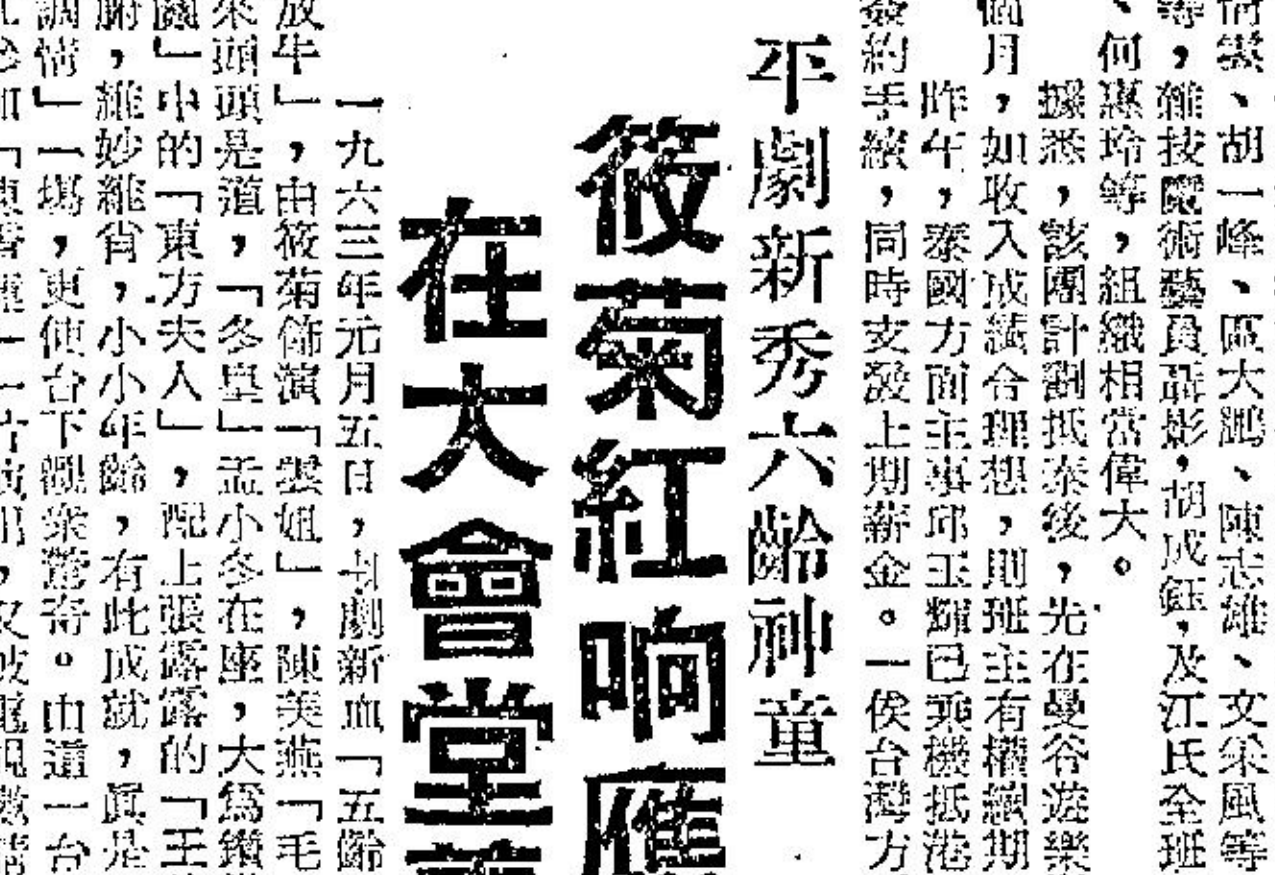 宿雲、胡一峰、區大鵬、陳志雄、文采風等
等，雜技魔術藝員聶影，胡成鈺，及江氏全班
、何惠玲等，組織相當偉大。
據悉，該團計劃抵泰後，先在曼谷遊樂
個月，如收入成績合理想，則班主有權續期
昨午，泰國方面主事邱玉輝已乘機抵港
簽約手續，同時支發上期薪金。一俟台灣方
平劇新秀六齡神童
筱菊紅响應
在大會堂
一九六三年元月五日，劇新血「五齡
放牛」，由筱菊飾演「雲姐」，陳美燕「毛
來頭頭是道，「冬皇」孟小冬在座，大爲鑽
關」中的「東方夫人」，配上張露露的「王
腑，維妙維肖，小小年齡，有此成就，眞是
調情」一場，更使台下觀衆驚奇。由這一台